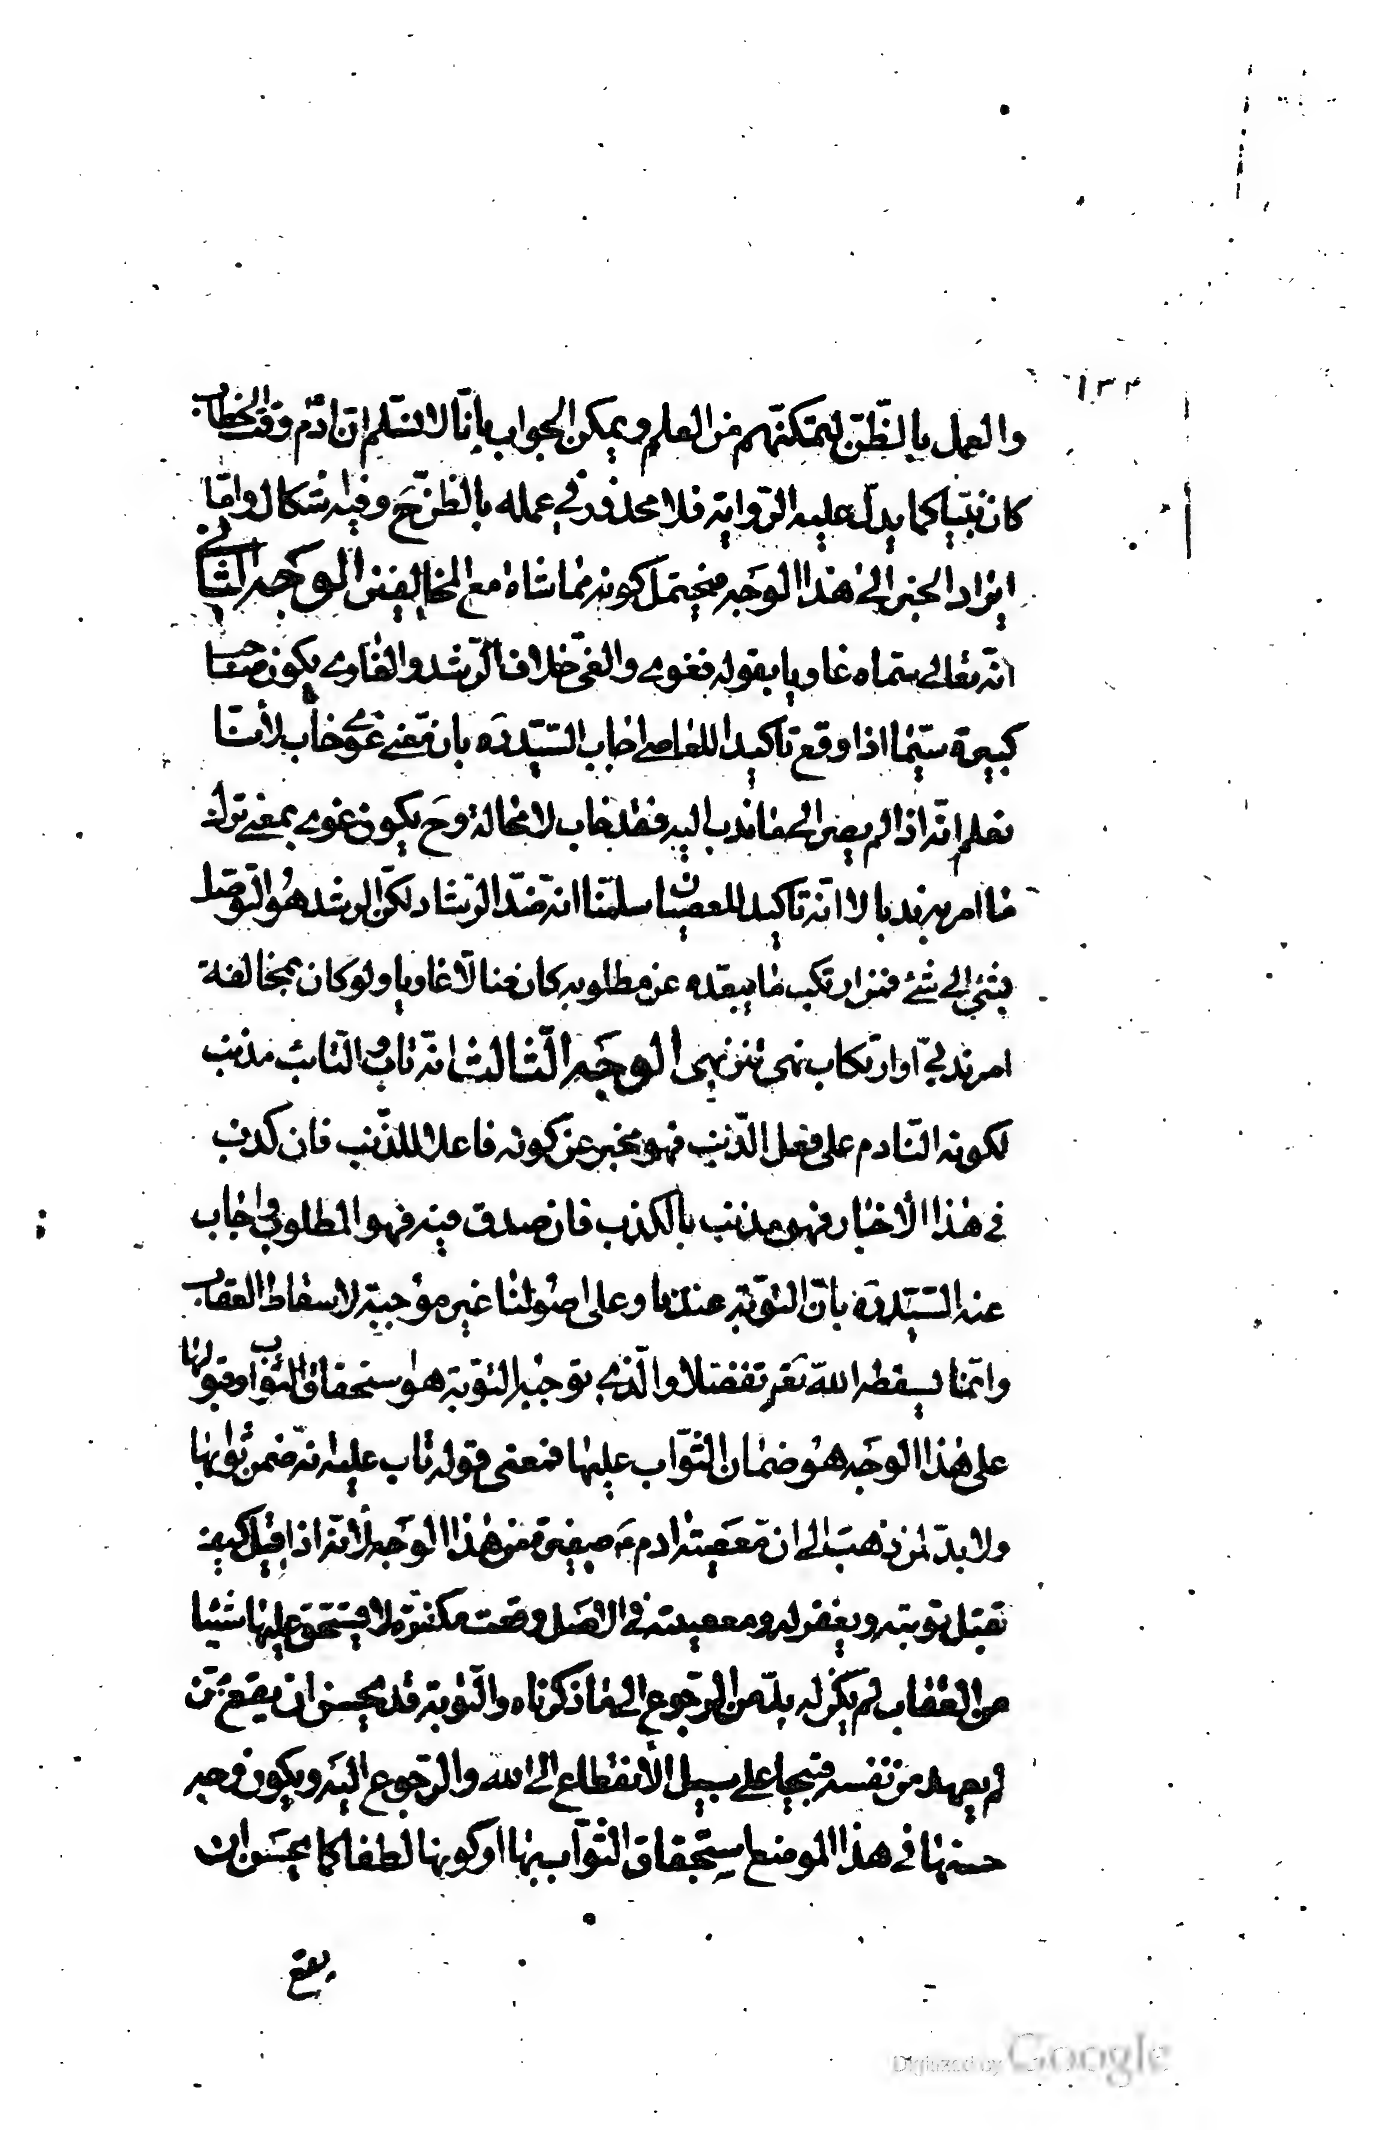 ١٣٢
والعمل بالظّن لتمكنّهم من العلم ويمكن الجواب بانّا لا نسلّم انّ ادم وقت الخطاب
كان نبيّا كما يدلّ عليه الرّواية فلا محذور في عمله بالظّن ح وفيه اشكال وامّا
ايراد الخبر الى هذا الوجه فيحتمل كونه مماشاة مع المخالفين الوجه الثاني
انّه تعالى سمّاه غاويا بقوله فغوى والغيّ خلاف الرّشد والغاوى يكون صاحب
كبيرة سيّما اذا وقع تاكيدا للعاصى اجاب السّيّد ره بان معنى غوى خاب لأنّنا
نعلم انّه اذا لم يصر الى ما ندب اليه فقد خاب لا محالة وح يكون غوى بمعنى ترك
ما امر به ندبا لا انّه تاكيد للعصيان سلمنّا انّه ضدّ الرّشاد لكن الرشد هو التّوصل
بشئ الى شئ فمن ارتكب ما يبعّده عن مطلوبه كان ضالّا غاويا ولو كان بمخالفة
امر ندبيّ او ارتكاب نهى تنزيهى الوجه الثّالث انّه تاب والتّائب مذنب
لكونه النّادم على فعل الذّنب فهو مخبر عن كونه فاعلا للذّنب فان كذب
في هذا الاخبار فهو مذنب بالكذب فان صدق فيه فهو المطلوب واجاب
عنه السّيّد ره بانّ التّوبة عندنا وعلى اصولنا غير موجبة لاسقاط العقاب
وانّما يسقطه اللّه تعالى تفضّلا والّذى توجبه التّوبة هو استحقاق الثّواب وقبولها
على هذا الوجه هو ضمان الثّواب عليها فمعنى قوله تاب عليه انّه ضمن ثوابها
ولا بدّ لمن ذهب الى ان معصية ادم ع صغيرة من هذا الوجه لأنّه اذا قيل كيف
تقبل توبته ويغفر له ومعصيته في الاصل وقعت مكفّرة لا يستحق عليها شيئا
من العقاب لم يكن له بدّ من الرّجوع الى ما ذكرناه والتّوبة قد يحسن ان يقع ممّن
لم يعهد من نفسه قبيحا على سبيل الأنقطاع الى اللّه والرّجوع اليه ويكون وجه
حسنها في هذا الموضع استحقاق الثّواب بها او كونها لطفا كما يحسن ان
يقع
Digitized by Google